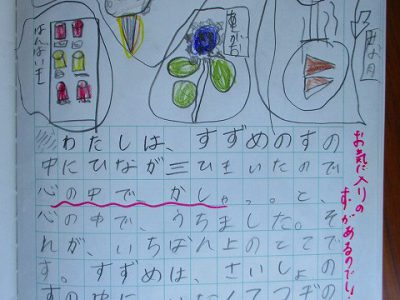 はんばいき
あさがお
わたしは、すずめのすの
中にひなが三びきいたので
心の中で、かしゃっ。と、
心の中で、うちました。そ
れが、いちばん上のとこで
す。すずめは、さいしょの
すの中に
つぎの
お気に入りの
すがあるのでしょ